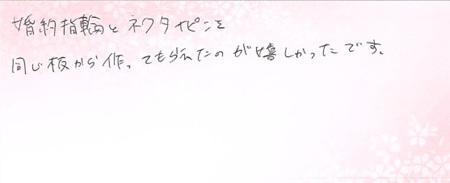 婚約指輪とネクタイピンを
同じ板から作ってもらえたのが嬉しかったです。